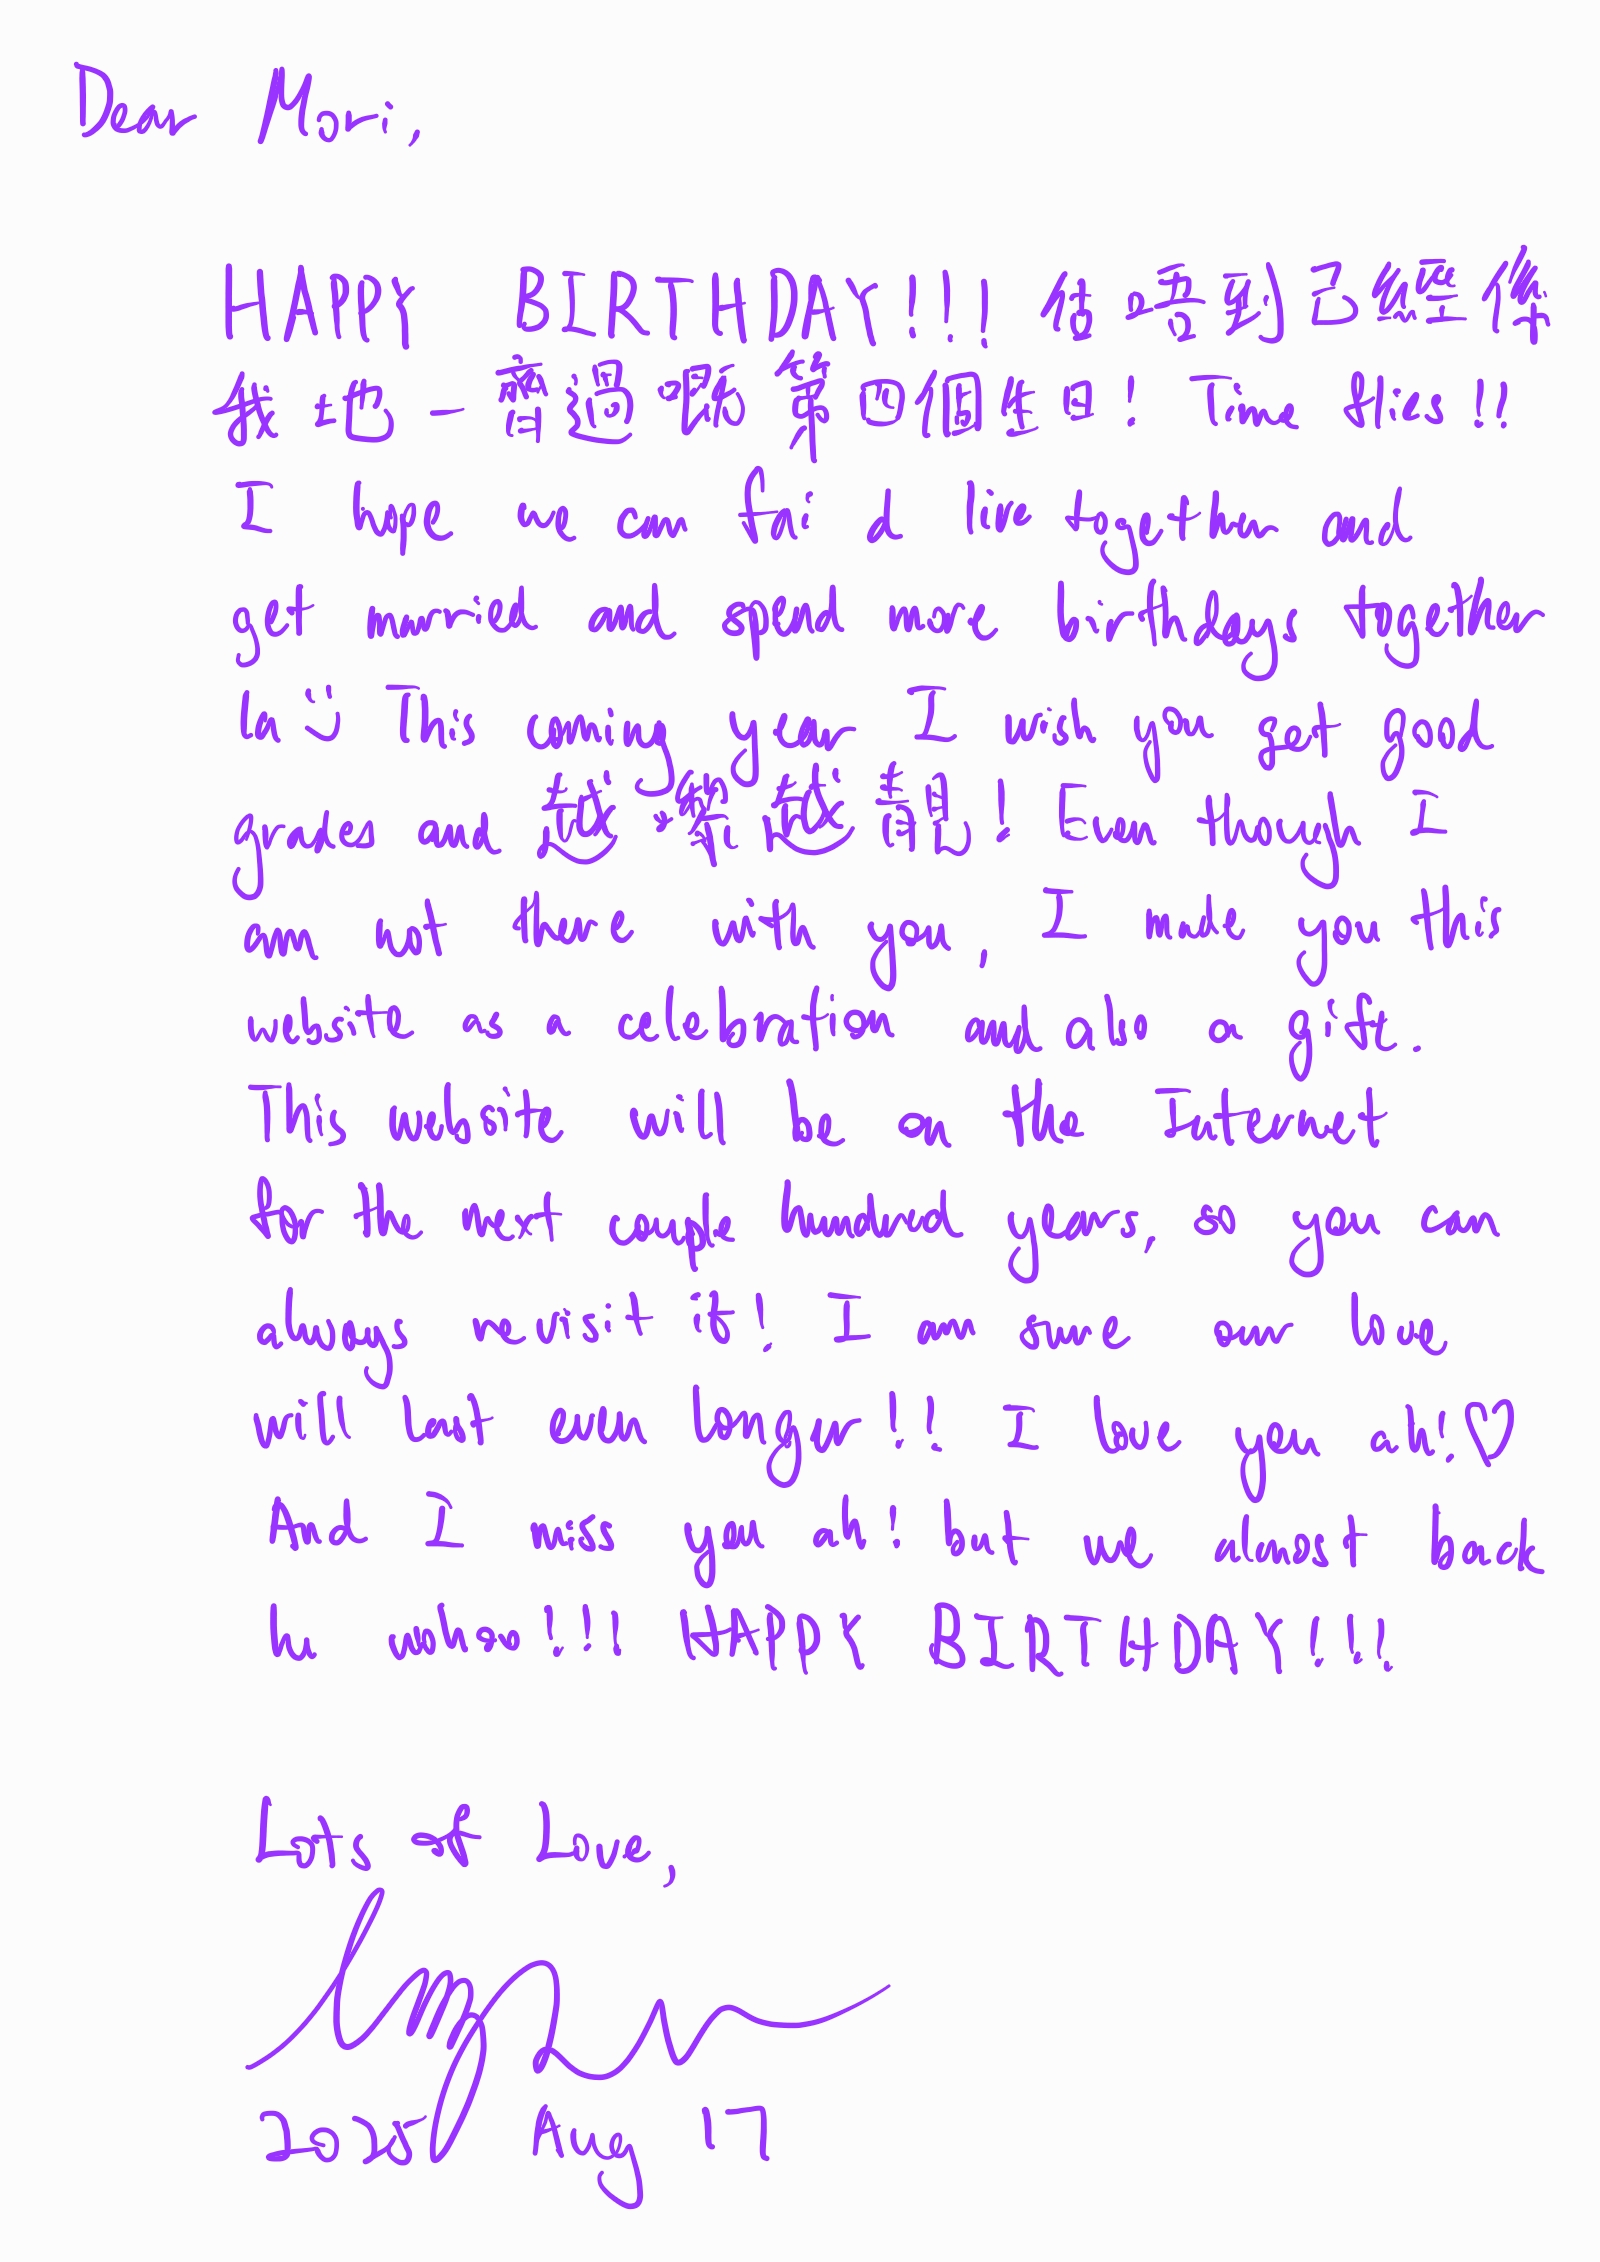 Dear Mori,
HAPPY BIRTHDAY!!! 估唔到已經係
我地一齊過嘅第四個生日! Time flies!!
I hope we can fai d live together and
get married and spend more birthdays together
la :) This coming year I wish you get good
grades and 越嚟越靚! Even though I
am not there with you, I made you this
website as a celebration and also a gift.
This website will be on the Internet
for the next couple hundred years, so you can
always revisit it! I am sure our love
will last even longer!! I love you ah! ♡
And I miss you ah! but we almost back
lu wohoo!!! HAPPY BIRTHDAY!!!
Lots of Love,
2025 Aug 17